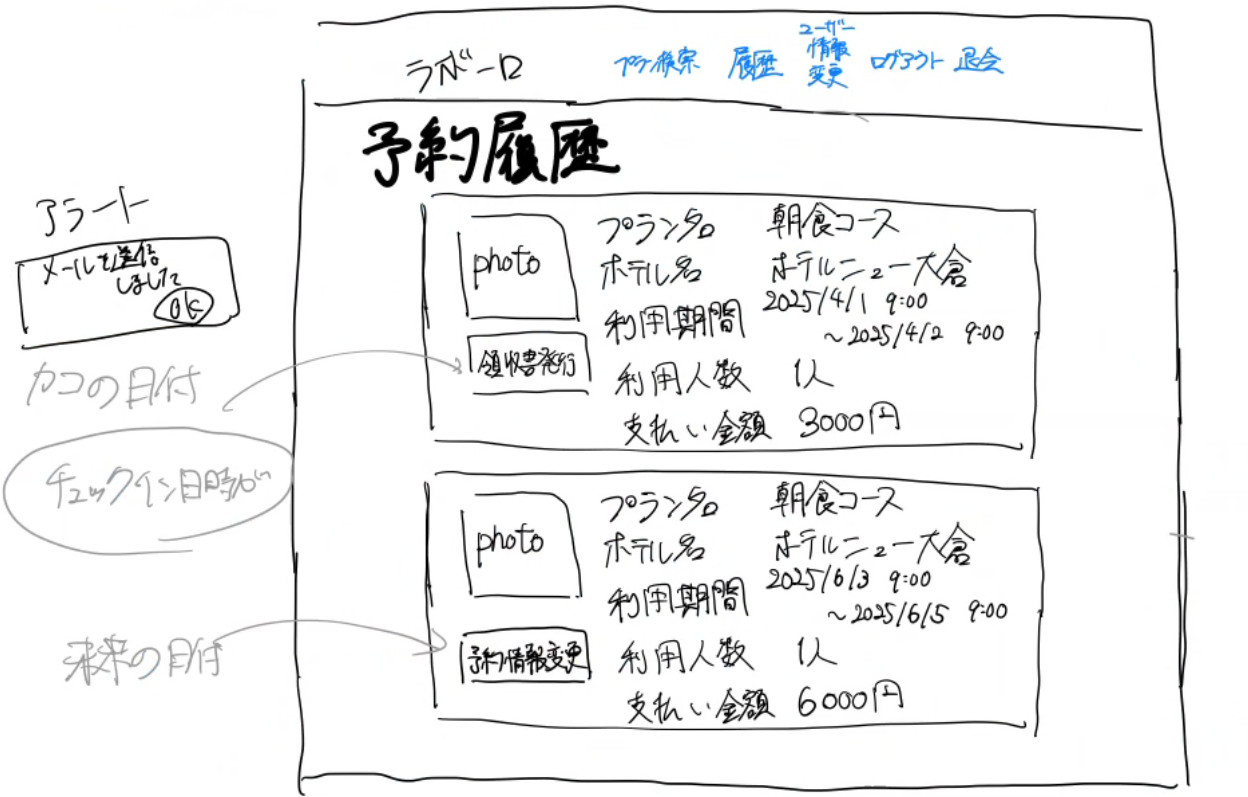 ラボーロ
プラン検索 履歴 ユーザー情報変更 ログアウト 退会
予約履歴
アラート
メールを送信
しました
OK
カコの日付
チェックイン日時が
未来の日付
photo
領収書発行
プラン名 朝食コース
ホテル名 ホテルニュー大倉
利用期間 2025/4/1 9:00
~2025/4/2 9:00
利用人数 1人
支払い金額 3000円
photo
予約情報変更
プラン名 朝食コース
ホテル名 ホテルニュー大倉
利用期間 2025/6/3 9:00
~2025/6/5 9:00
利用人数 1人
支払い金額 6000円